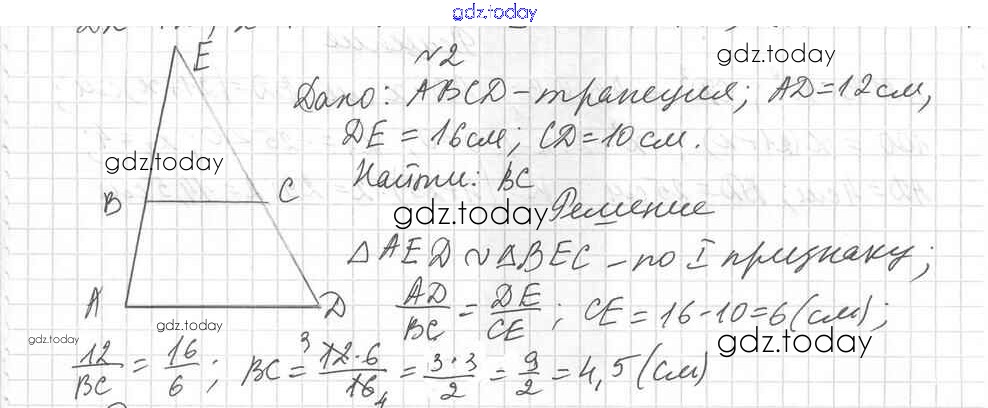 gdz.today
№2
gdz.today
E
Дано: ABCD – трапеция; AD = 12 см,
DE = 16 см; CD = 10 см.
gdz.today
Найти: BC
B C
gdz.today
Решение
△AED ~ △BEC – по I признаку;
A D
AD/BC = DE/CE; CE = 16 - 10 = 6 (см);
gdz.today
gdz.today
gdz.today
12/BC = 16/6; BC = 3 12·6/16 4 = 3·3/2 = 9/2 = 4,5 (см)